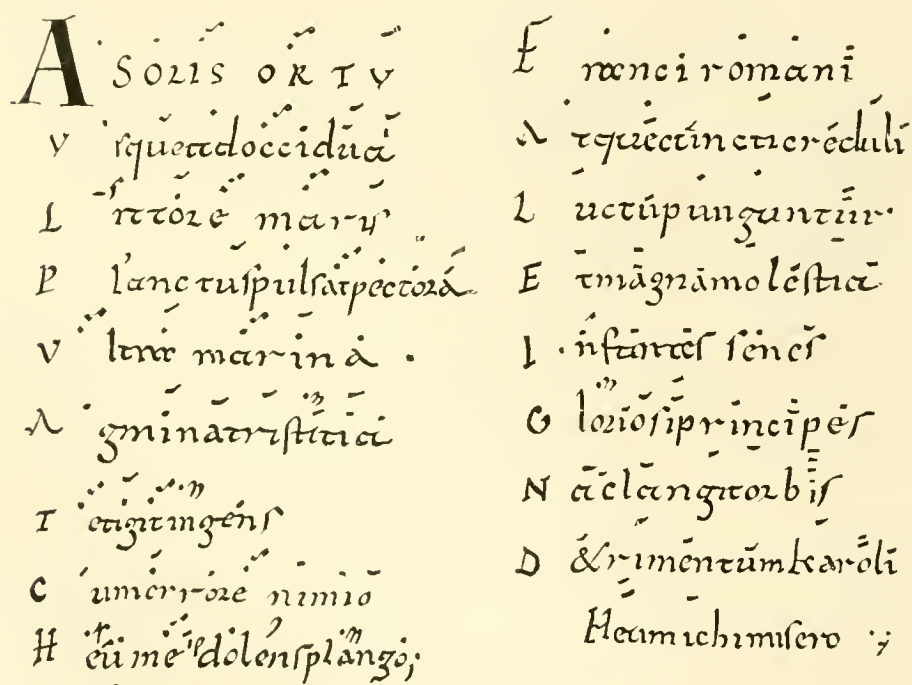 A SOLIS ORTU
Vsquead occidua
Littore maris
Planctus pulsat pectora
Vltra marina
Agmina tristitia
Tetigit ingens
Cum errore nimio
Heu me dolens plango;
Franci romani
Atque cuncti creduli
Luctu punguntur.
Et magna molestia
Infantes senes
Gloriosi principes
Na clangit orbis
Detrimentum karoli
Heu mihi misero